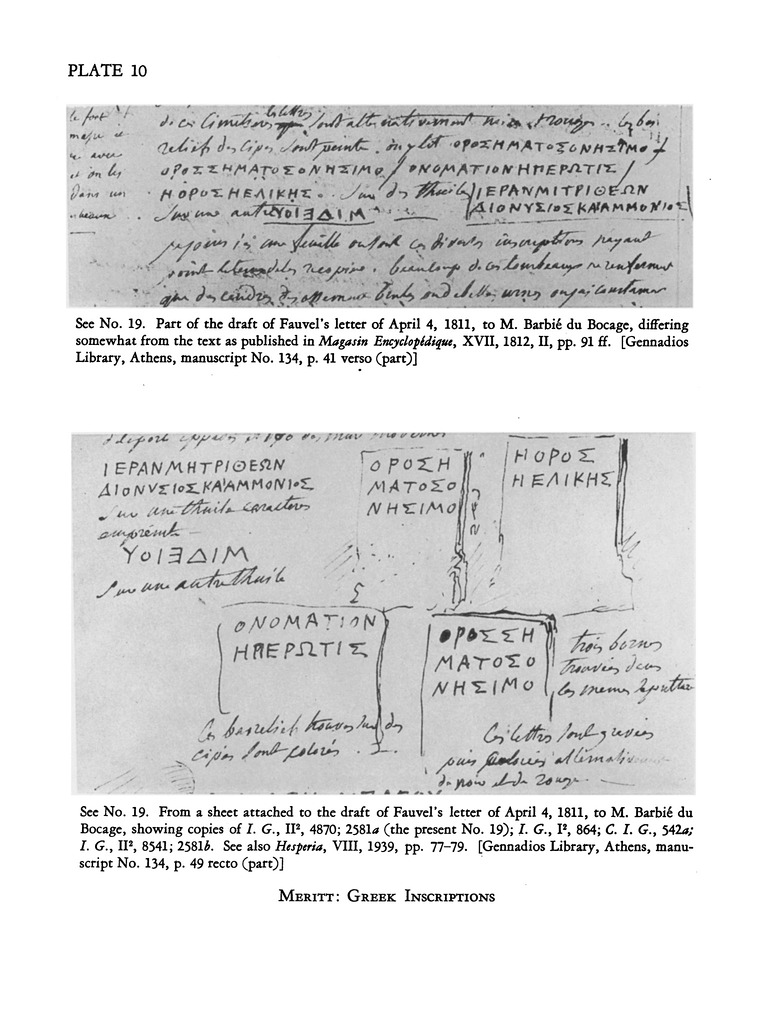 PLATE 10
les lettres
de ces Cimetieres sont alternativement noires et rouges. les bas
reliefs des cipes sont peints. on y lit ΟΡΟΣΗΜΑΤΟΣΟΝΗΣΙΜΟ /
ΟΡΟΣΣΗΜΑΤΟΣΟΝΗΣΙΜΟ / ΟΝΟΜΑΤΙΟΝΗΠΕΡΩΤΙΣ /
ΗΟΡΟΣΗΕΛΙΚΗΣ. Sur des thuiles ΙΕΡΑΝΜΙΤΡΙΘΕΩΝ
Sur une autre ΥΟΙΞΔΙΜ ΔΙΟΝΥΣΙΟΣΚΑΙΑΜΜΟΝΙΟΣ
une feuille ou sont ces diverses inscriptions
beaucoup de ces tombeaux ne renferment
que des cendres des ossemens
le font
avec
et on les
dans un
See No. 19. Part of the draft of Fauvel's letter of April 4, 1811, to M. Barbié du Bocage, differing
somewhat from the text as published in Magasin Encyclopédique, XVII, 1812, II, pp. 91 ff. [Gennadios
Library, Athens, manuscript No. 134, p. 41 verso (part)]
ΙΕΡΑΝΜΗΤΡΙΘΕΩΝ
ΔΙΟΝΥΣΙΟΣΚΑΙΑΜΜΟΝΙΟΣ
Sur une thuile caracteres
empreints
ΥΟΙΞΔΙΜ
Sur une autre thuile
ΟΡΟΣΗ
ΜΑΤΟΣΟ
ΝΗΣΙΜΟ
ΗΟΡΟΣ
ΗΕΛΙΚΗΣ
ΟΝΟΜΑΤΙΟΝ
ΗΠΕΡΩΤΙΣ
ΟΡΟΣΣΗ
ΜΑΤΟΣΟ
ΝΗΣΙΜΟ
trois bornes
trouvées dans
les memes sepultur
Ces basreliefs trouvés sur des
cipes sont colorés.
Ces lettres sont gravées
puis coloriées alternativement
de noir et de rouge.
See No. 19. From a sheet attached to the draft of Fauvel's letter of April 4, 1811, to M. Barbié du
Bocage, showing copies of I. G., II², 4870; 2581a (the present No. 19); I. G., I², 864; C. I. G., 542a;
I. G., II², 8541; 2581b. See also Hesperia, VIII, 1939, pp. 77-79. [Gennadios Library, Athens, manu-
script No. 134, p. 49 recto (part)]
MERITT: GREEK INSCRIPTIONS